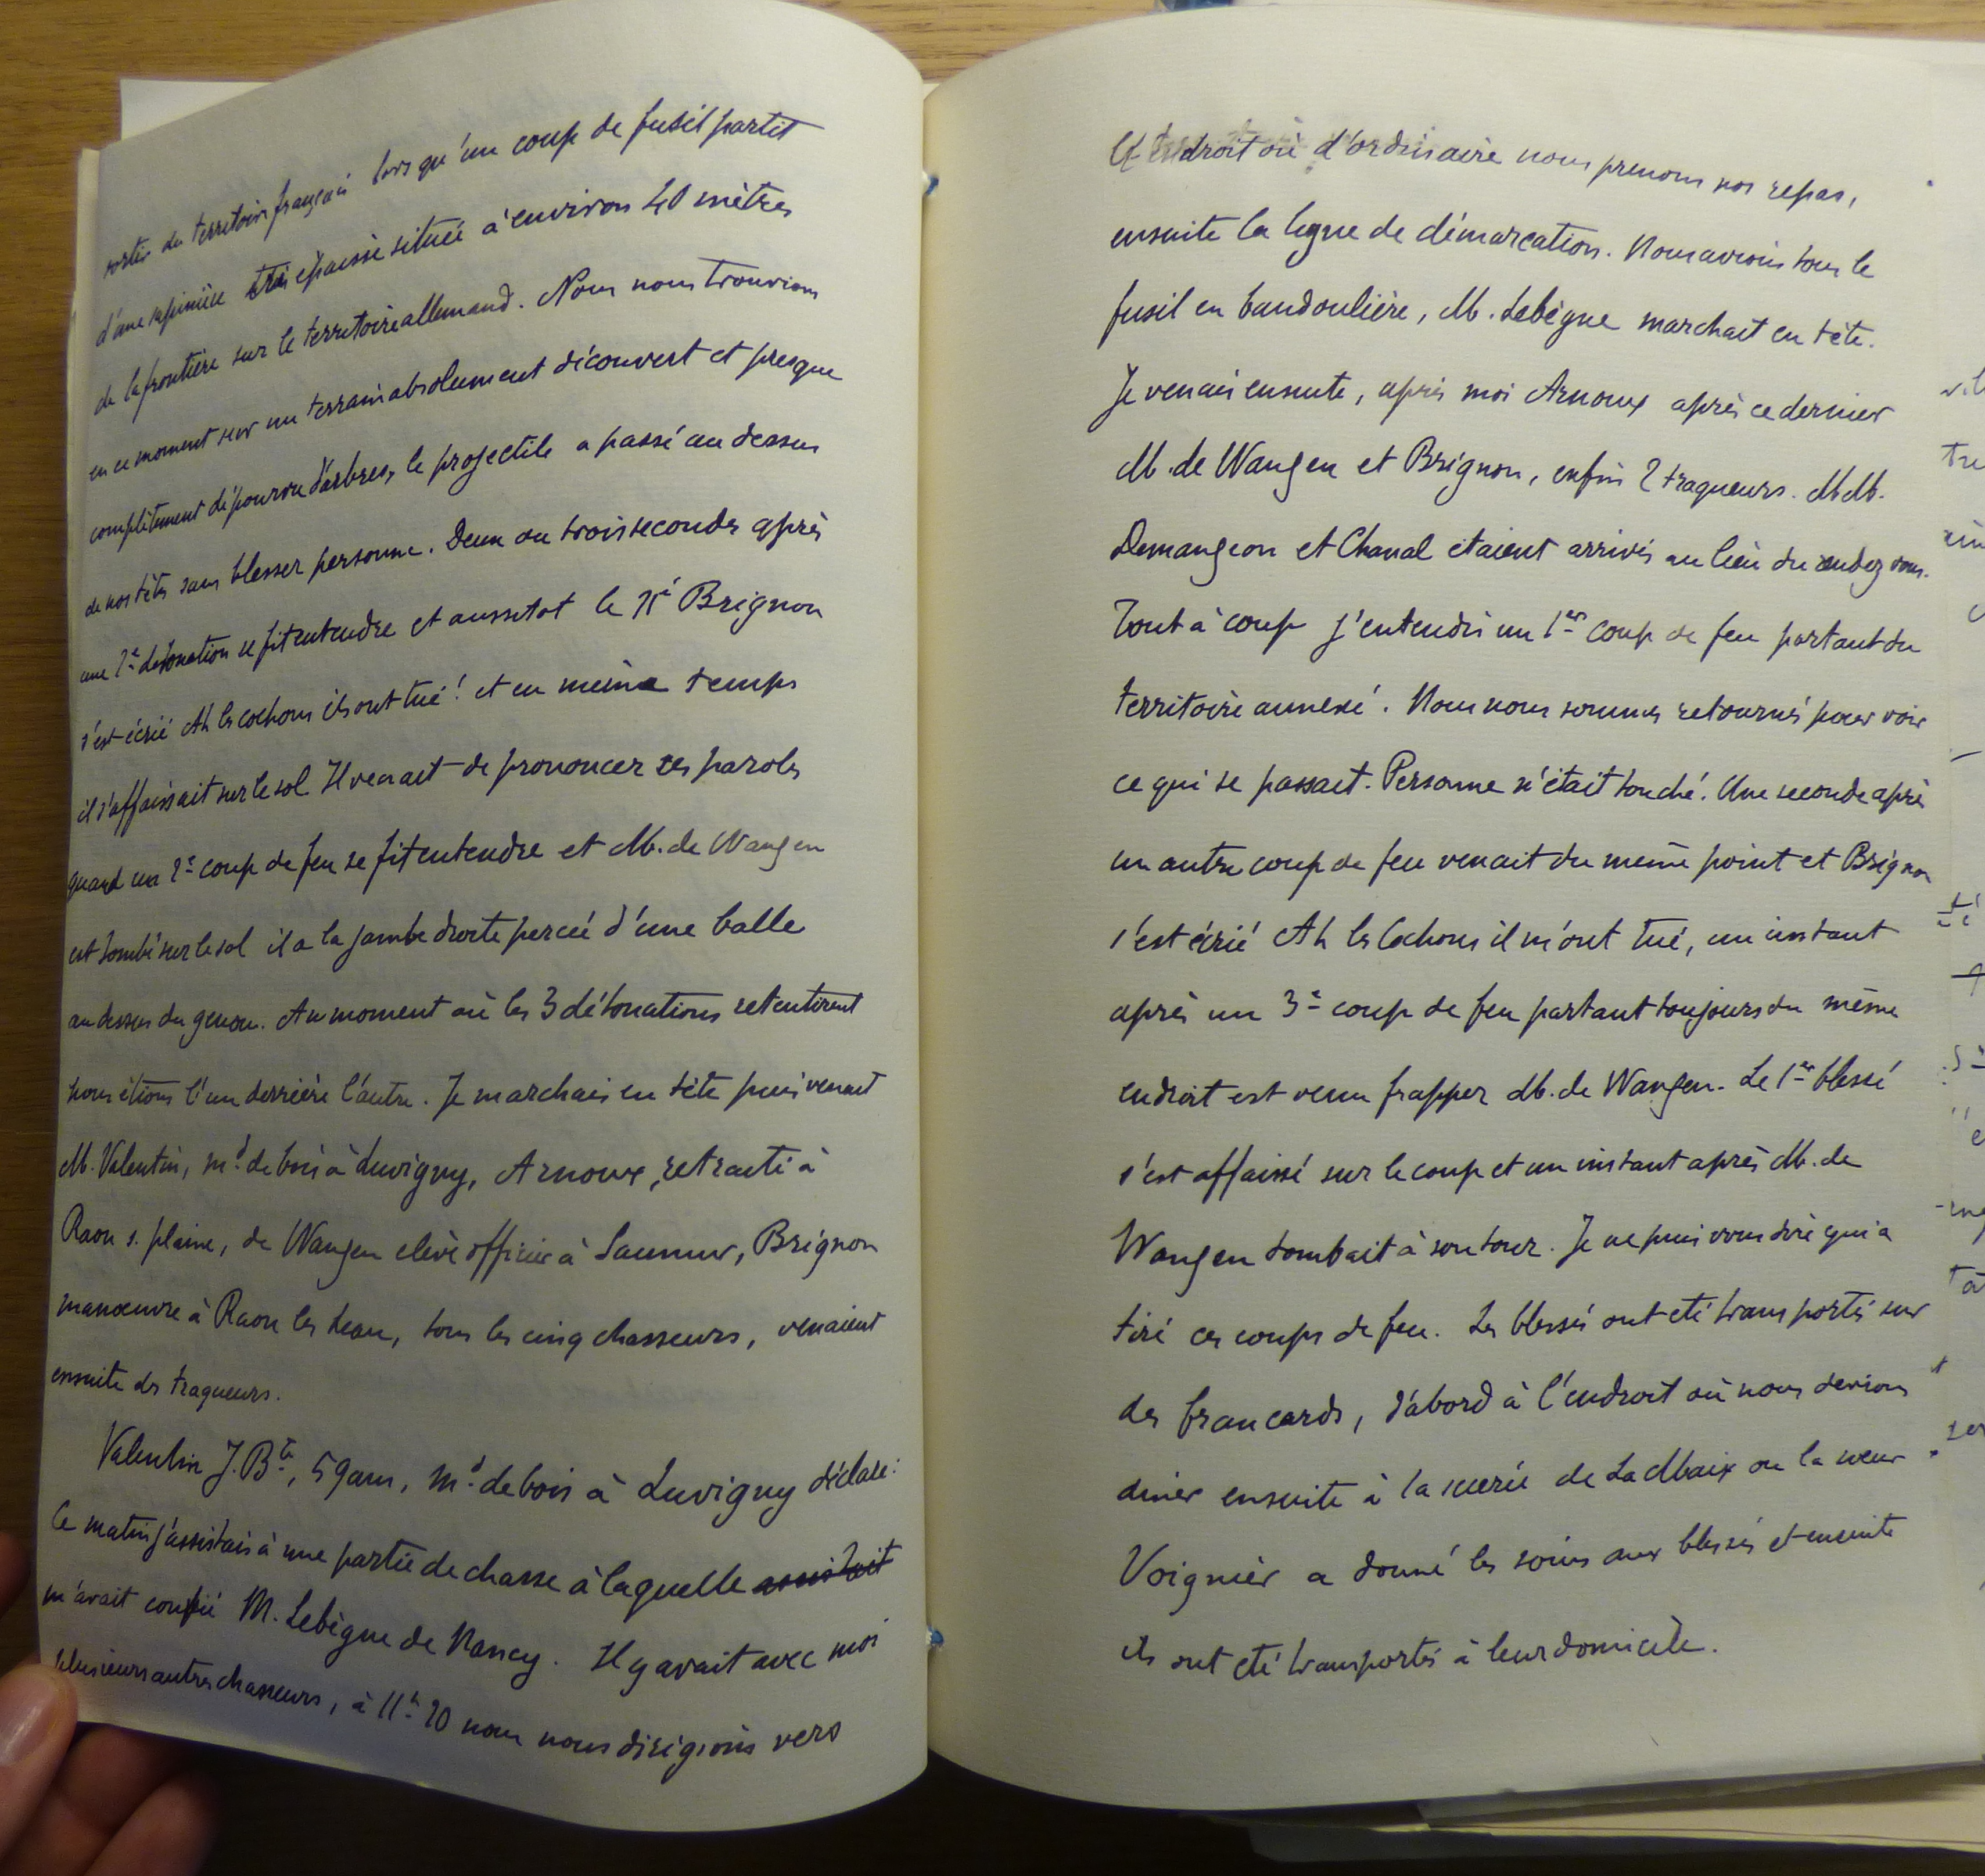 sortir du territoire français lorsqu'un coup de fusil partit
d'une sapinière très épaisse située à environ 40 mètres
de la frontière sur le territoire allemand. Nous nous trouvions
en ce moment sur un terrain absolument découvert et presque
complètement dépourvu d'arbres, le projectile a passé au dessus
de nos têtes sans blesser personne. Deux ou trois secondes après
une 2e détonation se fit entendre et aussitot le né Brignon
s'est écrié Ah les cochons ils ont tué ! et en même temps
il s'affaissait sur le sol Il venait de prononcer ses paroles
quand un 2e coup de feu se fit entendre et M. de Wangen
est tombé sur le sol il a la jambe droite percée d'une balle
au dessus du genou. Au moment où les 3 détonations retentirent
nous étions l'un derrière l'autre. Je marchais en tête puis venait
M. Valentin, md de bois à Luvigny, Arnoux, retraité à
Raon s. plaine, de Wangen elève officier à Saumur, Brignon
manœuvre à Raon les Leau, tous les cinq chasseurs, venaient
ensuite des traqueurs.
Valentin J. Bte, 59 ans, md de bois à Luvigny déclare :
Ce matin j'assistais à une partie de chasse à laquelle assistait
m'avait confié M. Lebègue de Nancy. Il y avait avec moi
plusieurs autres chasseurs, à 11h 20 nous nous dirigions vers
l'endroit où d'ordinaire nous prenons nos repas,
ensuite la ligne de démarcation. Nous avions tous le
fusil en bandoulière, M. Lebègue marchait en tête.
Je venais ensuite, après moi Arnoux après ce dernier
M. de Wangen et Brignon, enfin 2 traqueurs. MM.
Demangeon et Chanal étaient arrivés au lieu du rendez vous.
Tout à coup j'entendis un 1er coup de feu partant du
territoire annexé. Nous nous sommes retournés pour voir
ce qui se passait. Personne n'était touché. Une seconde après
un autre coup de feu venait du même point et Brignon
s'est écrié Ah les Cochons il m'ont tué, un instant
après un 3e coup de feu partant toujours du même
endroit est venu frapper M. de Wangen. Le 1er blessé
s'est affaissé sur le coup et un instant après M. de
Wangen tombait à son tour. Je ne puis vous dire qui a
tiré ces coups de feu. Les blessés ont eté transportés sur
des brancards, d'abord à l'endroit où nous devions
diner ensuite à la scierie de La Maix ou la sœur
Voignier a donné les soins aux blessés et ensuite
ils ont eté transportés à leur domicile.